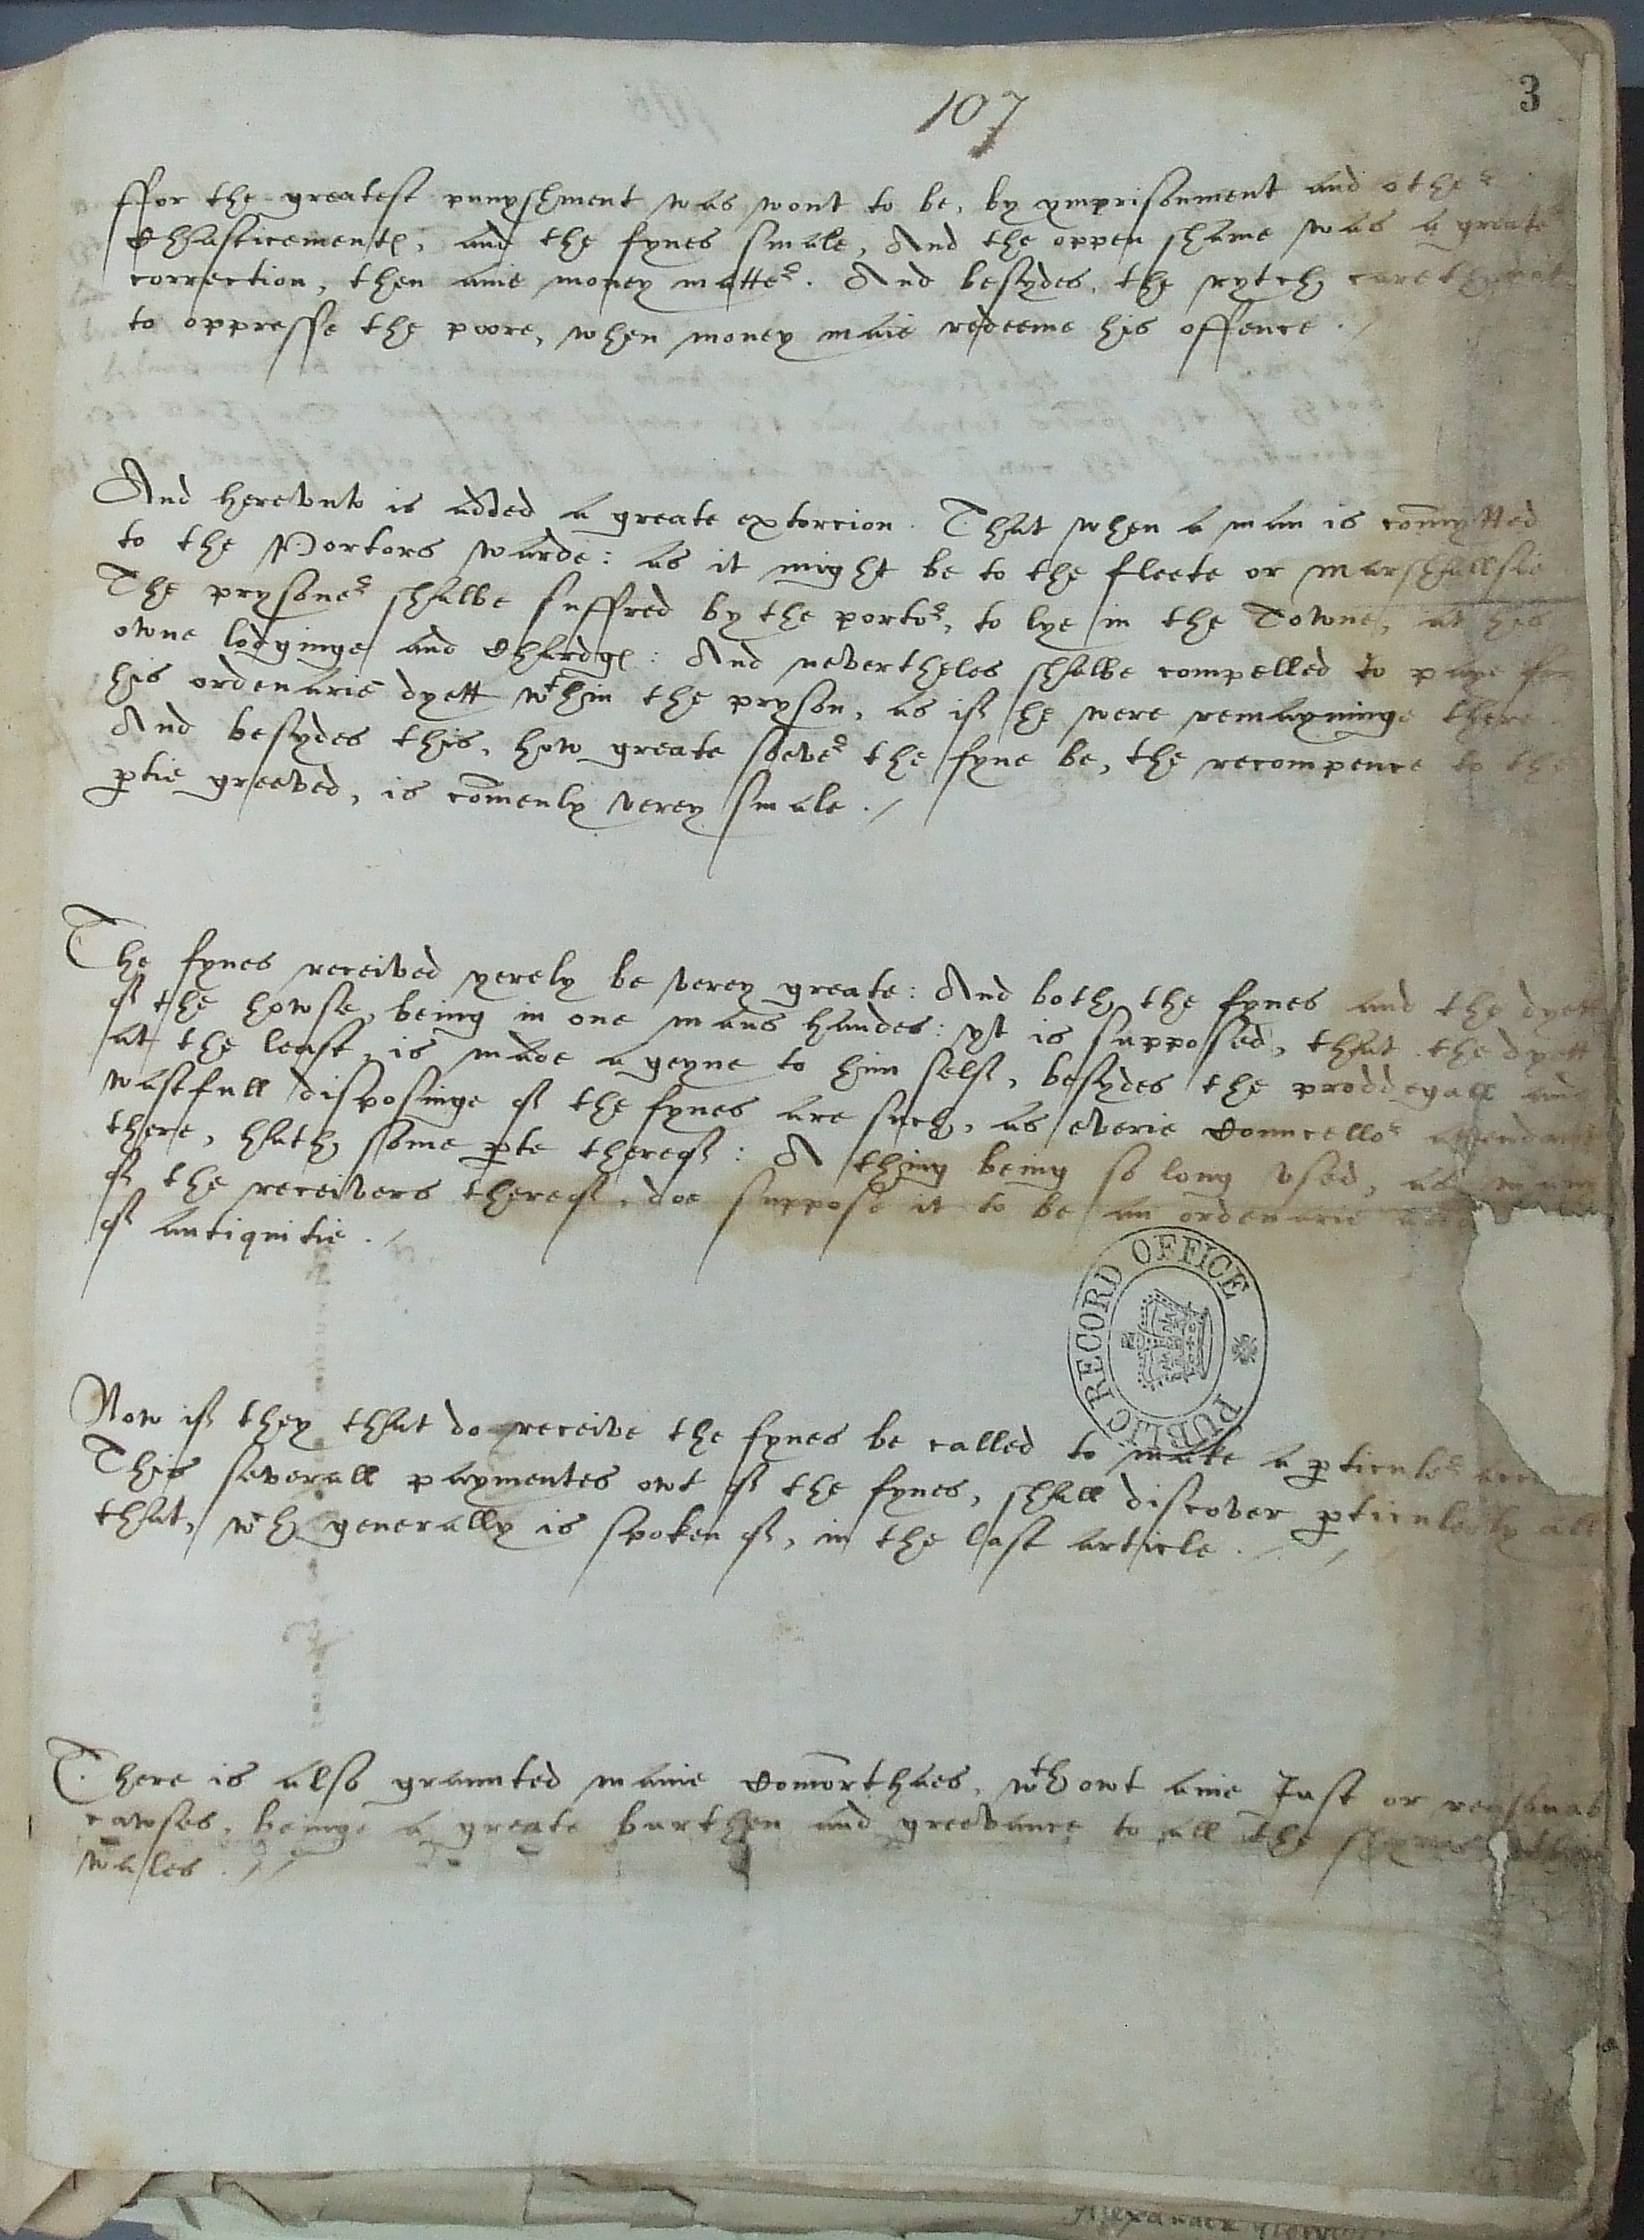 107
3
ffor the greatest punyshment was wont to be, by ymprisonment and other
Chasticementes, and the fynes smale, And the oppen shame was a greater
correction, then anie money matter. And besydes, the rytch careth not
to oppresse the poore, when money maie redeeme his offence ./
And herevnto is added a greate extorcion. That when a man is comytted
to the Portors warde: as it might be to the fleete or Marshallsie
The prysoner shalbe suffred by the portor, to lye in the Towne, at his
owne lodginge and Chardges: And nevertheles shalbe compelled to paye for
his ordenarie dyett wthin the pryson, as if he were remayninge there.
And besydes this, how greate soever the fyne be, the recompence to the
ptie greeved, is comenly verey smale ./
The fynes received yerely be verey greate: And both the fynes and the dyett
of the howse, being in one mans handes: yt is supposed, that the dyett
at the least, is made a geyne to him self, besydes the proddegall and
wastfull disposinge of the fynes are such, as everie Councellor attendant
there, hath some pte thereof: A thing being so long vsed, as many
of the receivers thereof, doe suppose it to be an ordenarie
of antiquitie ./
PUBLIC RECORD OFFICE
Now if they that do receive the fynes be called to make a pticulor
This severall paymentes owt of the fynes, shall discover pticulerly all
that, wch generally is spoken of, in the last article ./ /
There is also graunted manie Comorthaes, wthowt anie Just or reasonab
cawses, beinge a greate burthen and greevance to all the shyres wthin
wales ./ /
Alexander